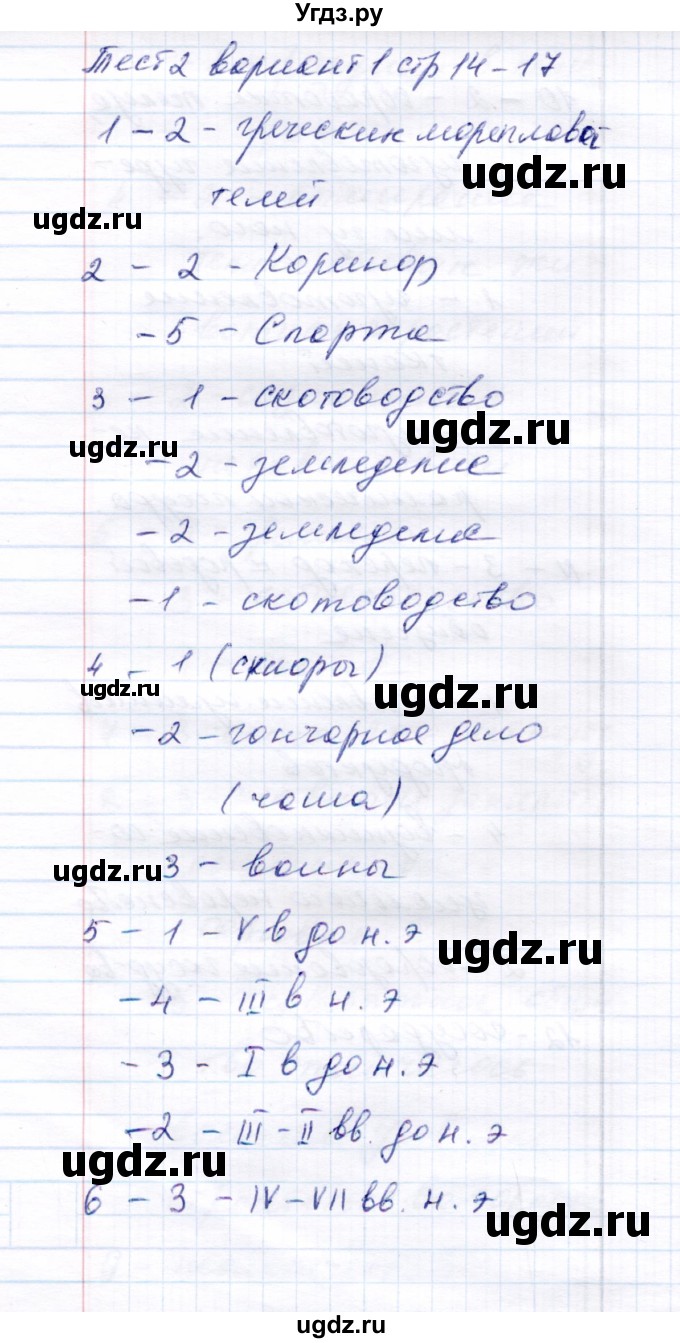 Угдз.ру
Тест 2 вариант 1 стр 14-17
1 - 2 - греческих морепллова
ugdz.ru
телей
ugdz.ru
2 - 2 - Коринф
- 5 - Спарта
3 - 1 - скотоводство
ugdz.ru
ugdz.ru
- 2 - земледелие
- 2 - земледелие
- 1 - скотоводство
4 - 1 (скифы)
ugdz.ru
ugdz.ru
- 2 - гончарное дело
(чаша)
ugdz.ru
3 - воины
5 - 1 - V в до н. э
ugdz.ru
- 4 - III в н. э
- 3 - I в до н. э
- 2 - III - II вв. до н. э
ugdz.ru
6 - 3 - IV - VII вв. н. э
ugdz.ru
ugdz.ru